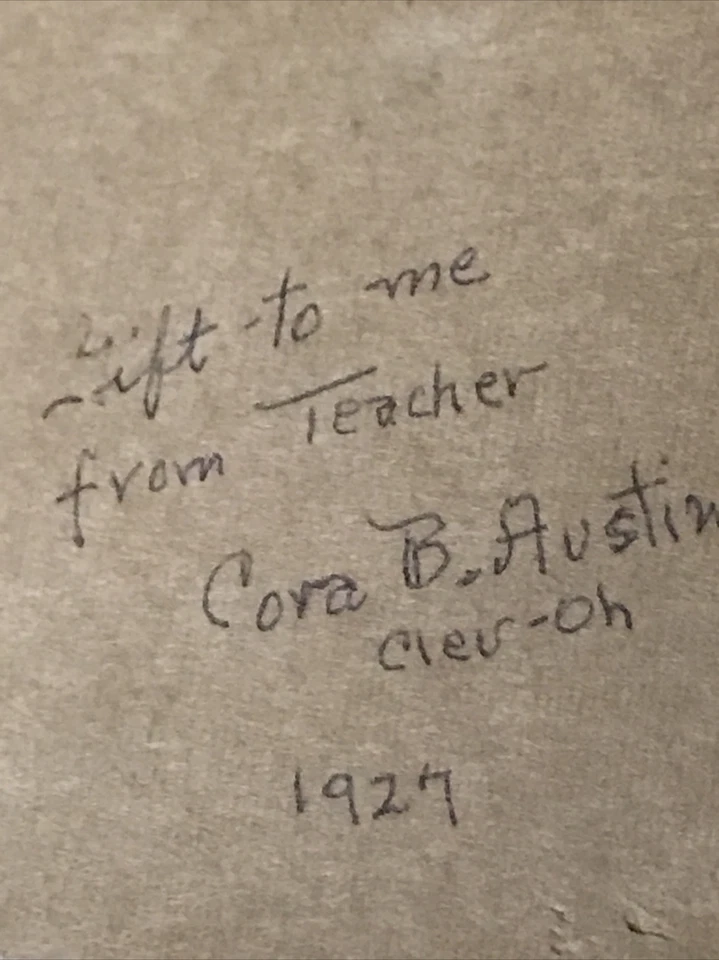 Gift to me
from Teacher
Cora B. Austin
Clev-Oh
1927